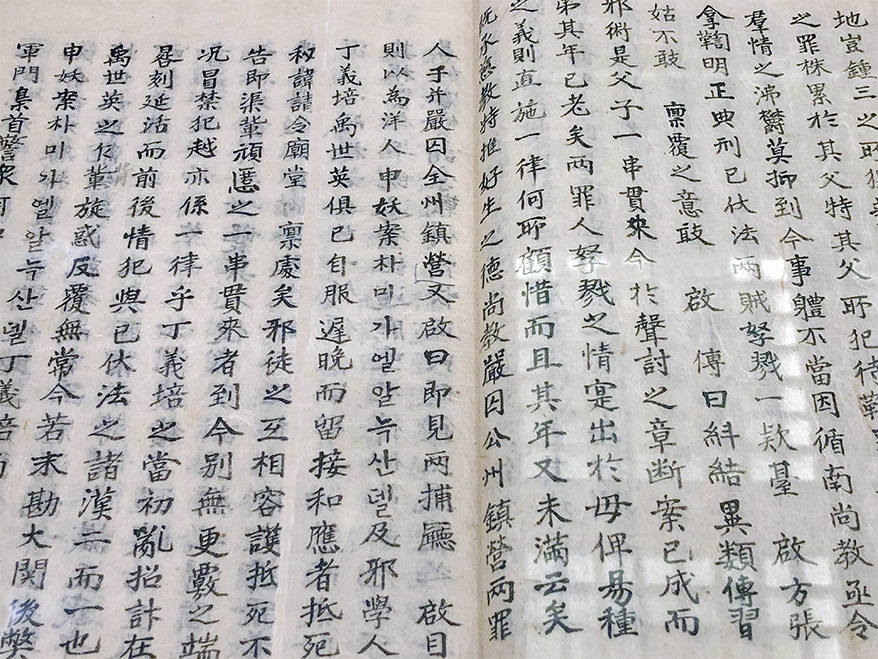 地豈鍾三之所犯
之罪株累於其父特其父所犯待鞫
羣情之沸鬱莫抑到今事體不當因循南尚教亟令
拿鞫明正典刑已伏法兩賊孥戮一欵臺 啟方張
姑不敢 稟覆之意敢 啟 傳曰糾結異類傳習
邪術是父子一串貫來今於聲討之章斷案已成而
弟其年已老矣兩罪人孥戮之情寔出於毋俾易種
之義則直施一律何所顧惜而且其年又未滿云矣
既承慈教特推好生之德尚教嚴囚公州鎮營兩罪
人子并嚴囚全州鎮營又 啟曰即見兩捕廳 啟目
則以為洋人申妖案朴미가엘알늑산델及邪學人
丁義培禹世英俱已自服遲晚而留接和應者抵死
秘諱請令廟堂 稟處矣邪徒之互相容護抵死不
告即渠輩頑匿之一串貫來者到今別無更覈之端
况冒禁犯越亦係一律乎丁義培之當初亂招計在
晷刻延活而前後情犯與已伏法之諸漢二而一也
禹世英之輩旋惑反覆無常今若末勘大関後弊
申妖案朴미가엘알늑산델丁義培
軍門梟首警衆何